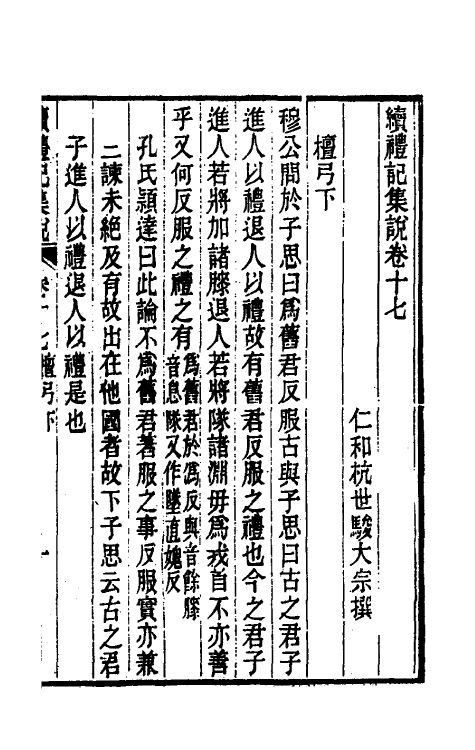 續禮記集說卷十七
仁和杭世駿大宗撰
檀弓下
穆公問於子思曰爲舊君反服古與子思曰古之君子
進人以禮退人以禮故有舊君反服之禮也今之君子
進人若將加諸膝退人若將隊諸淵毋爲戎首不亦善
乎又何反服之禮之有爲舊君於僞反與音餘膝
音息隊又作墜直媿反
孔氏頴達曰此論不爲舊君著服之事反服實亦兼
二諫未絶及有故出在他國者故下子思云古之君
子進人以禮退人以禮是也
續禮記集說 卷十七檀弓下 一